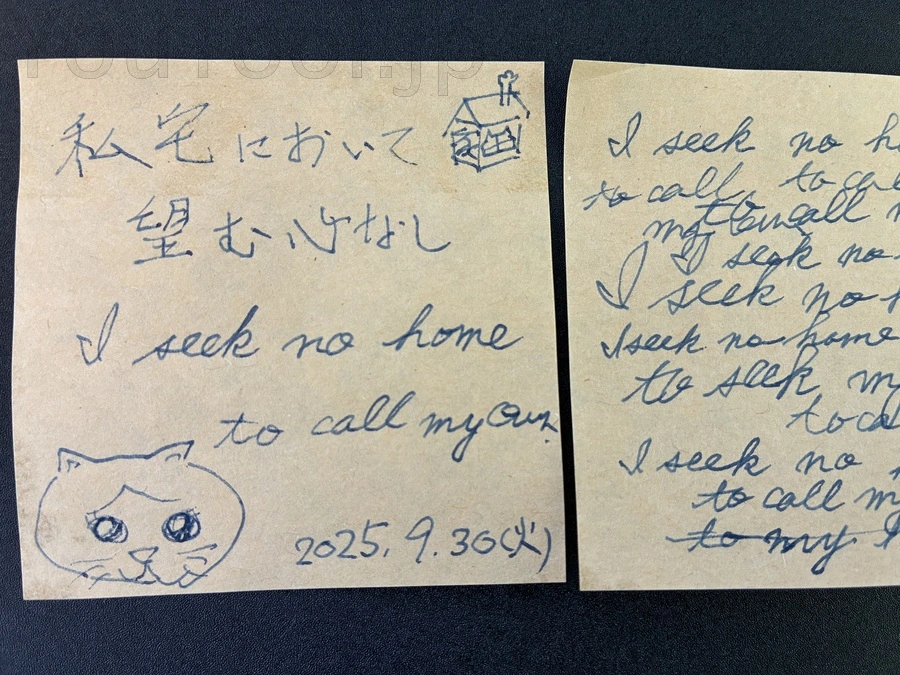 YouTool.jp
私宅において
望む心なし
I seek no home
to call my own.
2025. 9. 30 (火)
I seek no
to call to
to call
my
I seek no
I seek no
I seek no home
to seek my
to
I seek no
to call
to my